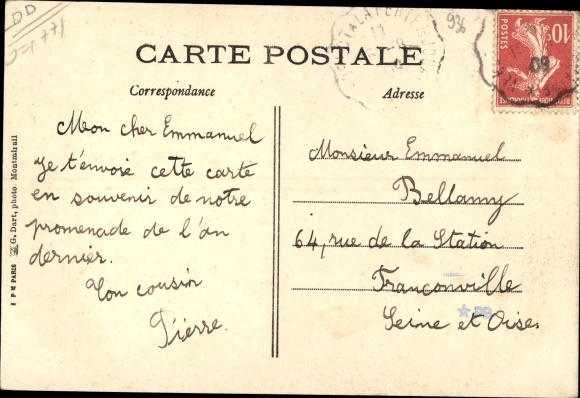 DD
936
CARTE POSTALE
Correspondance
Adresse
10c
POSTES
Mon cher Emmanuel
Je t'envoie cette carte
en souvenir de notre
promenade de l'an
dernier.
Ton cousin
Pierre.
Monsieur Emmanuel
Bellamy
64, rue de la Station
Franconville
Seine et Oise.
I P M PARIS G. Dart, photo. Montmirail